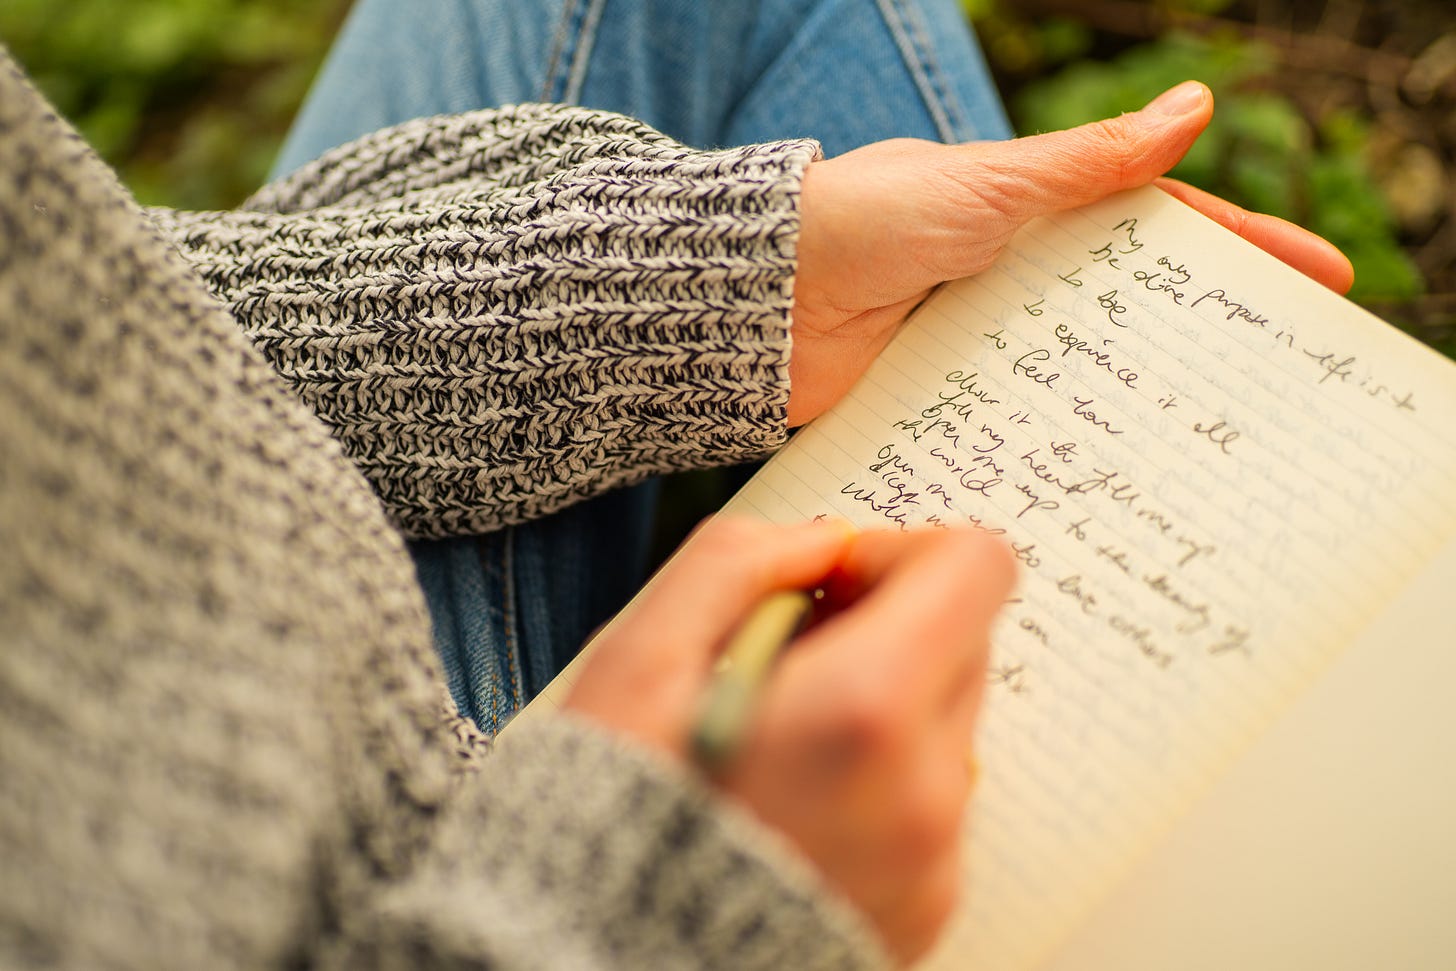 My only purpose in life is t
be alive
to be
to experience it all
to feel love
show it to fill me up
fill my heart
open me up to the beauty of
the world
open me up to love others
whole
t
an
to